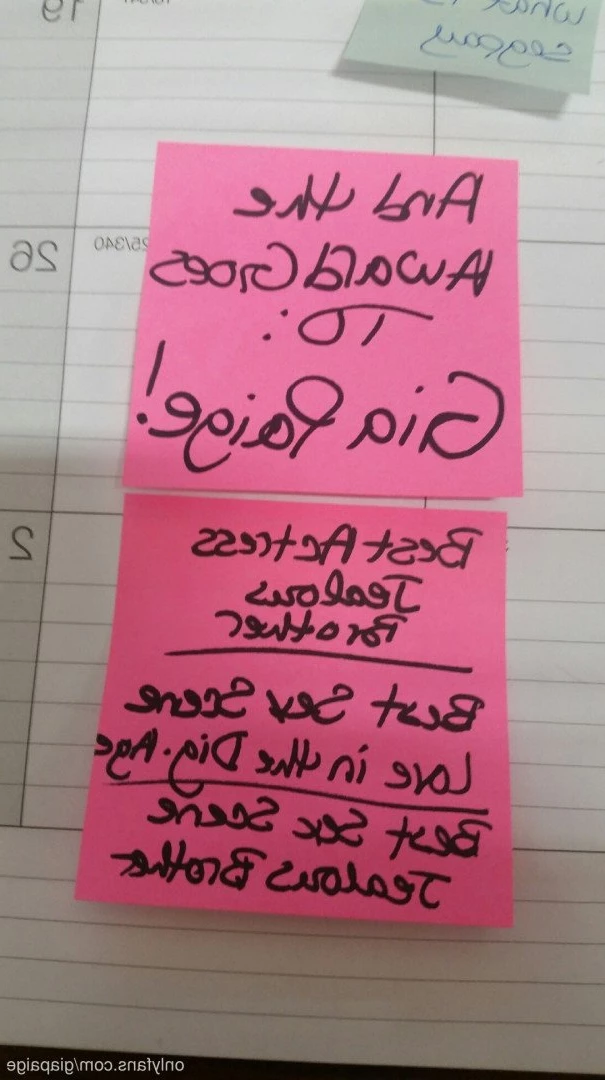 what is
segpay
19
26
25/340
And the
Award Goes
To:
Gia Paige!
2
Best Actress
Jealous
Brother
Best Sex Scene
Love in the Dig. Age
Best Sex Scene
Jealous Brother
onlyfans.com/giapaige